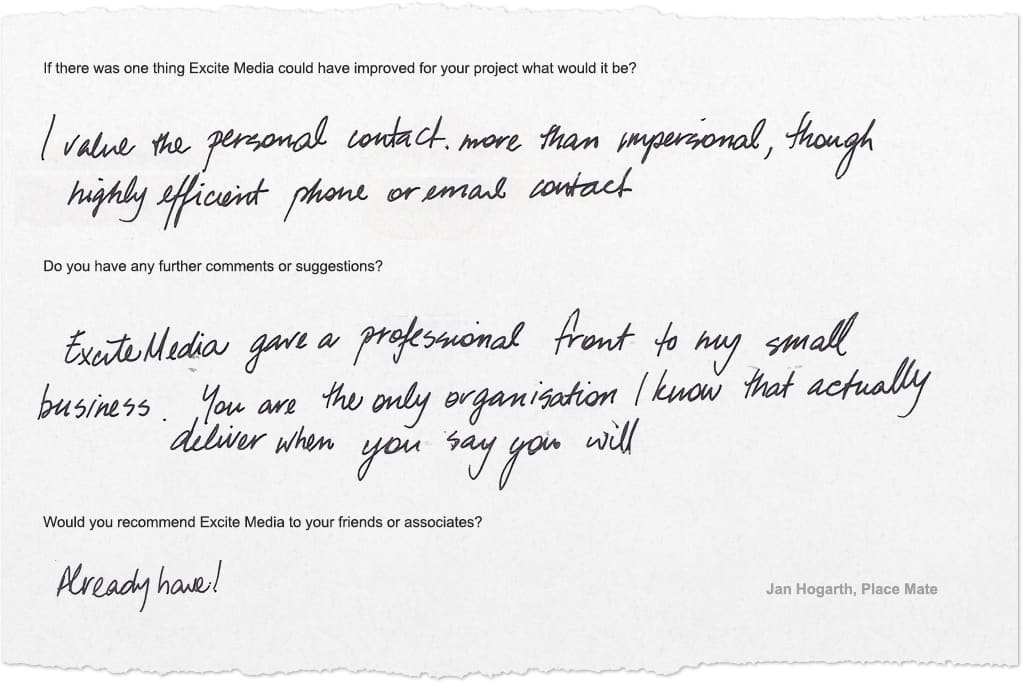 If there was one thing Excite Media could have improved for your project what would it be?
I value the personal contact. more than impersonal, though
highly efficient phone or email contact
Do you have any further comments or suggestions?
Excite Media gave a professional front to my small
business. You are the only organisation I know that actually
deliver when you say you will
Would you recommend Excite Media to your friends or associates?
Already have!
Jan Hogarth, Place Mate